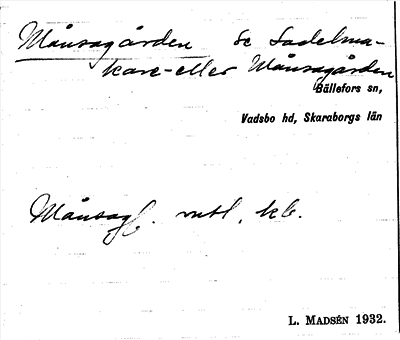 Månsagården Se Sadelma-
kare- eller Månsagården
Bällefors sn,
Vadsbo hd, Skaraborgs län
Månsag. mtl, kb.
L. MADSÉN 1932.